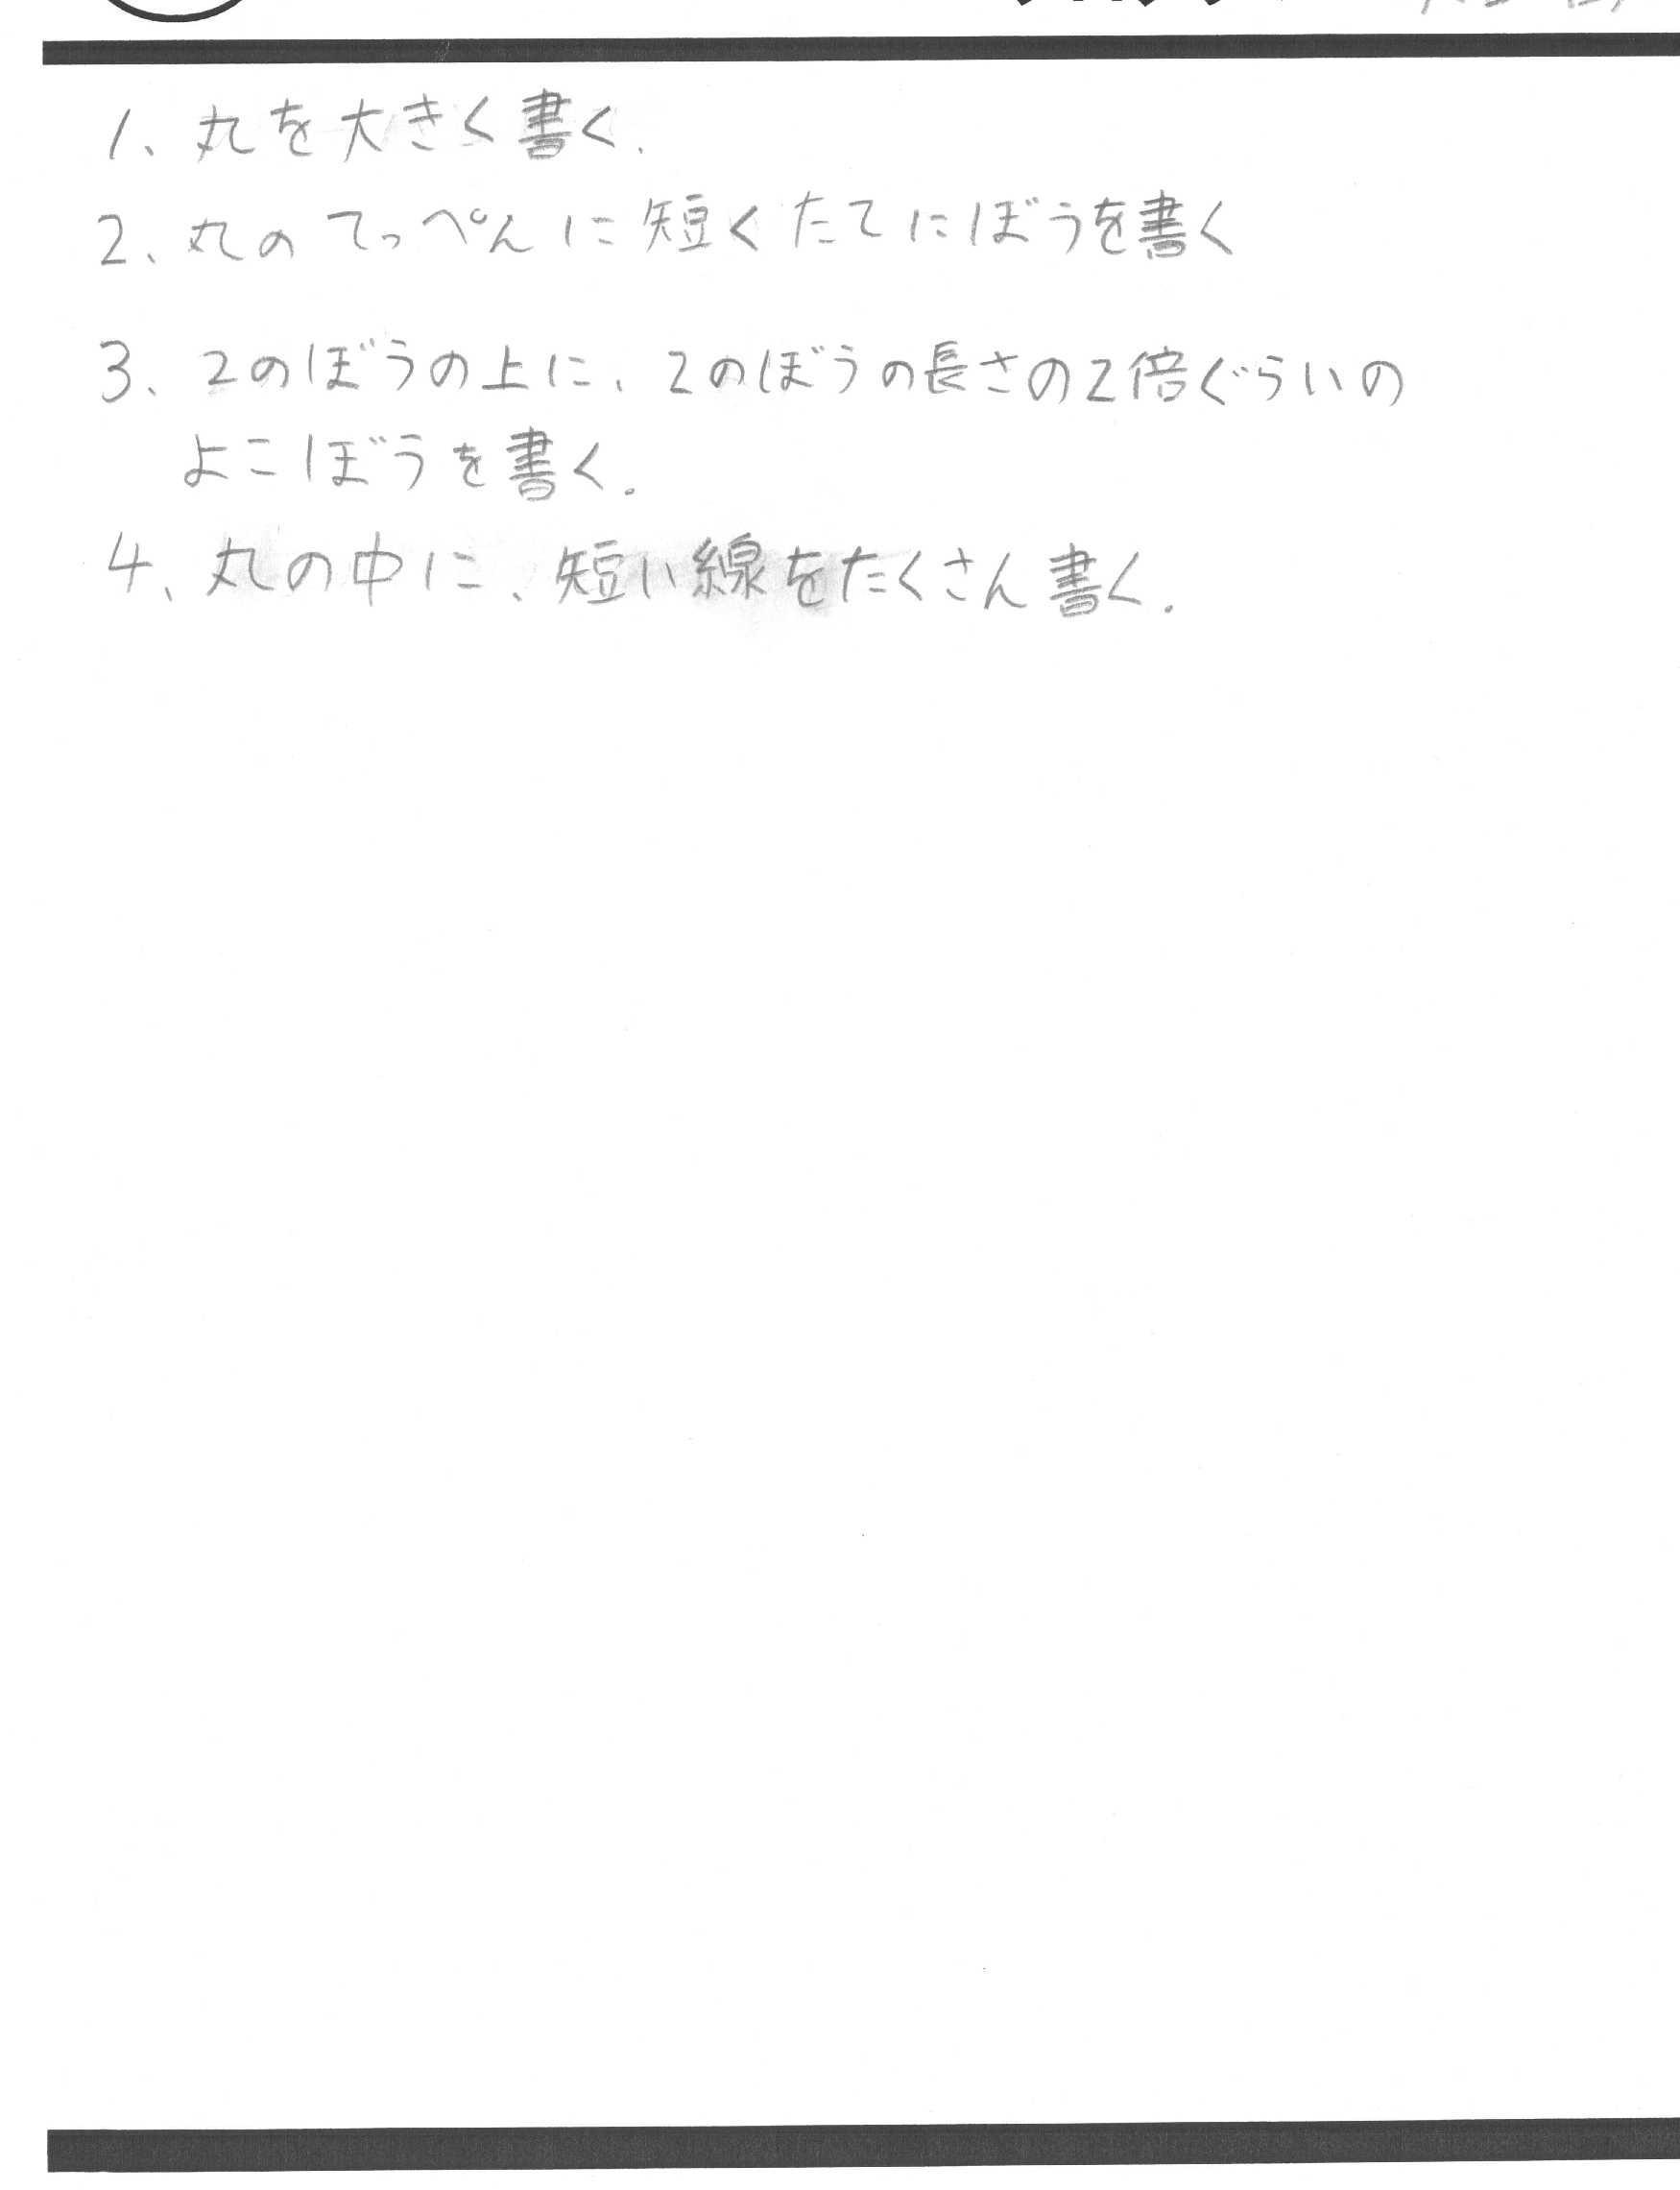 1、丸を大きく書く.
2、丸のてっぺんに短くたてにぼうを書く
3、2のぼうの上に、2のぼうの長さの2倍ぐらいの
よこぼうを書く.
4、丸の中に、短い線をたくさん書く.